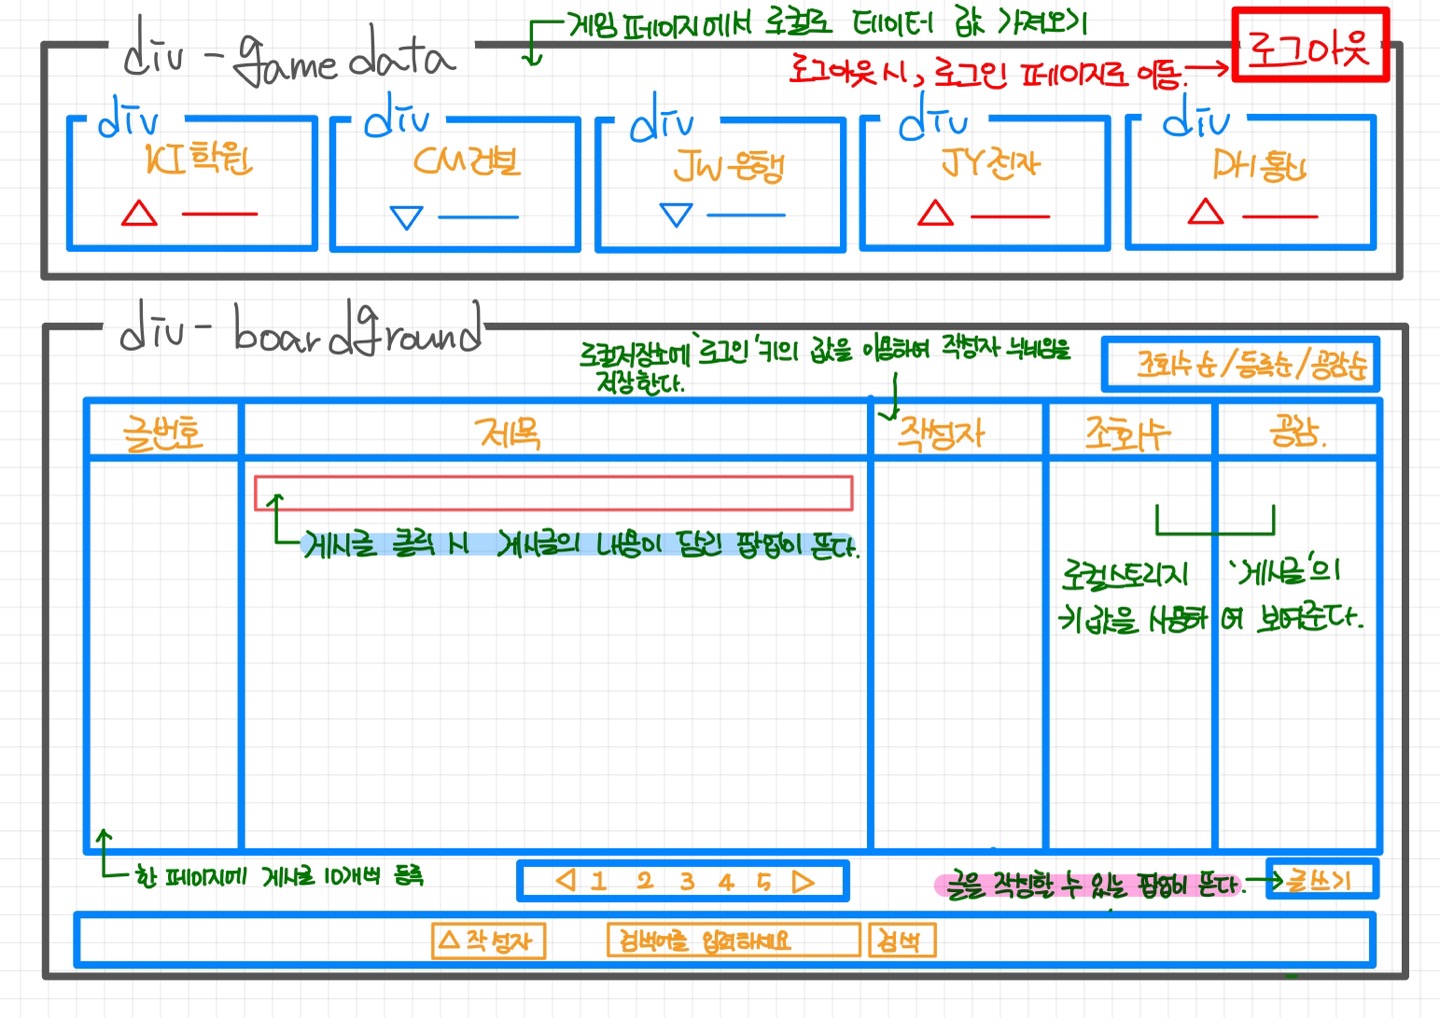 게임 페이지에서 로컬로 데이터 값 가져오기
로그아웃
div - game data
로그아웃 시, 로그인 페이지로 이동.
div
div
div
div
div
KI 학원
CM 건설
JW 은행
JY 전자
DH 통신
div - boardground
로컬저장소에 '로그인' 키의 값을 이용하여 작성자 닉네임을
저장한다.
조회수 순 / 등록순 / 공감순
글번호
제목
작성자
조회수
공감.
게시글 클릭 시 게시글의 내용이 담긴 팝업이 뜬다.
로컬스토리지 '게시글'의
키 값을 사용하여 보여준다.
한 페이지에 게시글 10개씩 등록
◁ 1 2 3 4 5 ▷
글을 작성할 수 있는 팝업이 뜬다.
글쓰기
△ 작성자
검색어를 입력하세요
검색